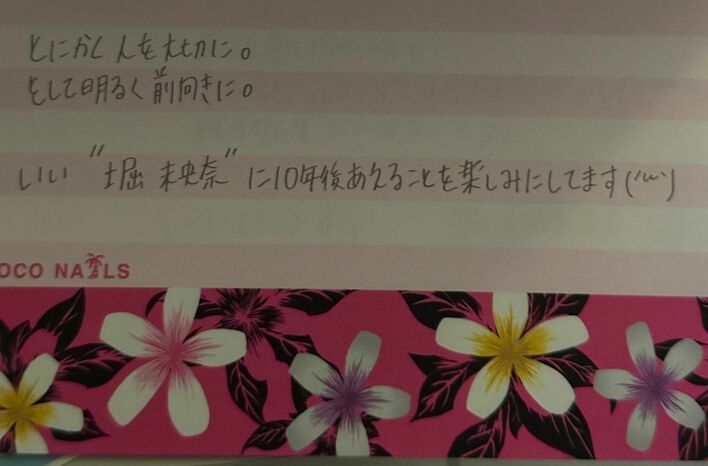 とにかく人を大切に。
そして明るく前向きに。
いい "堀 未央奈" に10年後あえることを楽しみにしてます('ω')
OCO NAILS